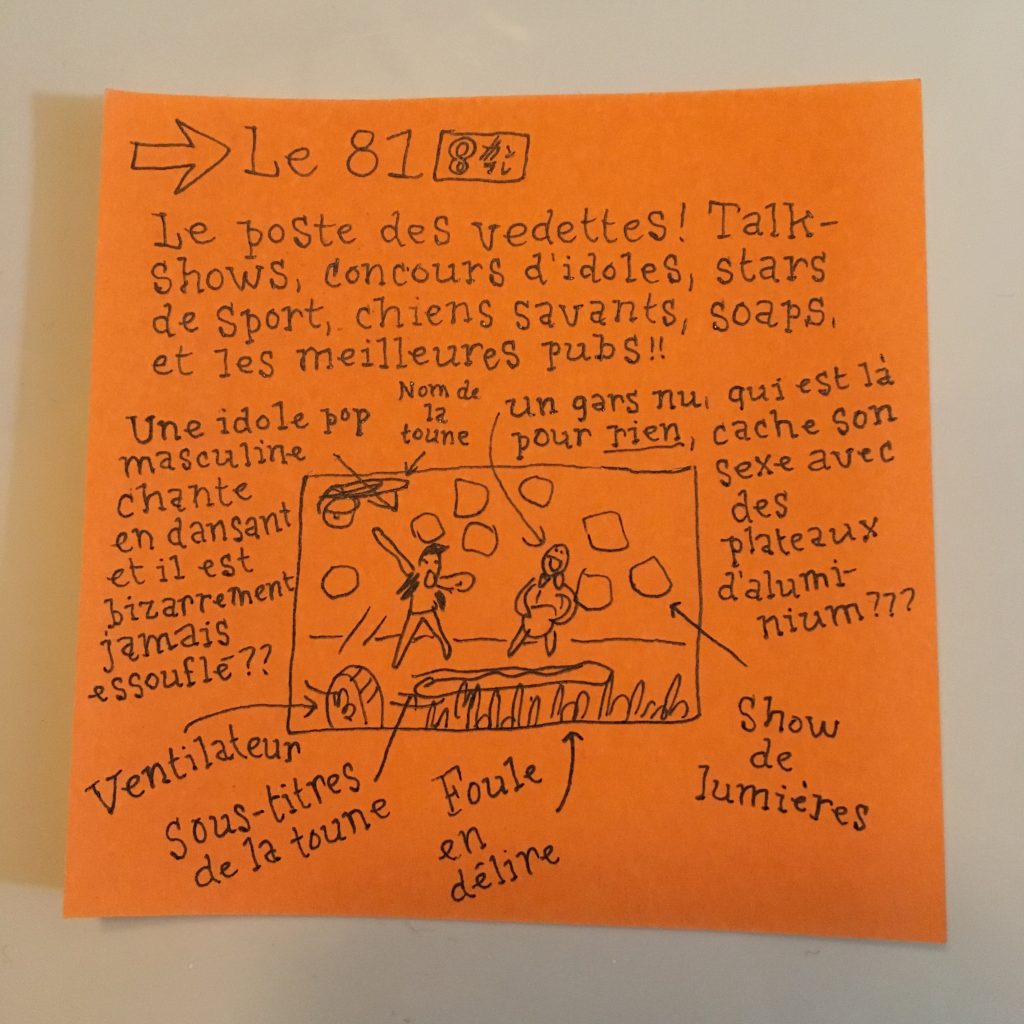 Le 81
Le poste des vedettes! Talk-
shows, concours d'idoles, stars
de sport, chiens savants, soaps,
et les meilleures pubs!!
Une idole pop
masculine
chante
en dansant
et il est
bizarrement
jamais
essouflé??
Nom de
la
toune
un gars nu, qui est là
pour rien, cache son
sexe avec
des
plateaux
d'alumi-
nium???
Ventilateur
Sous-titres
de la toune
Foule
en
délire
Show
de
lumières